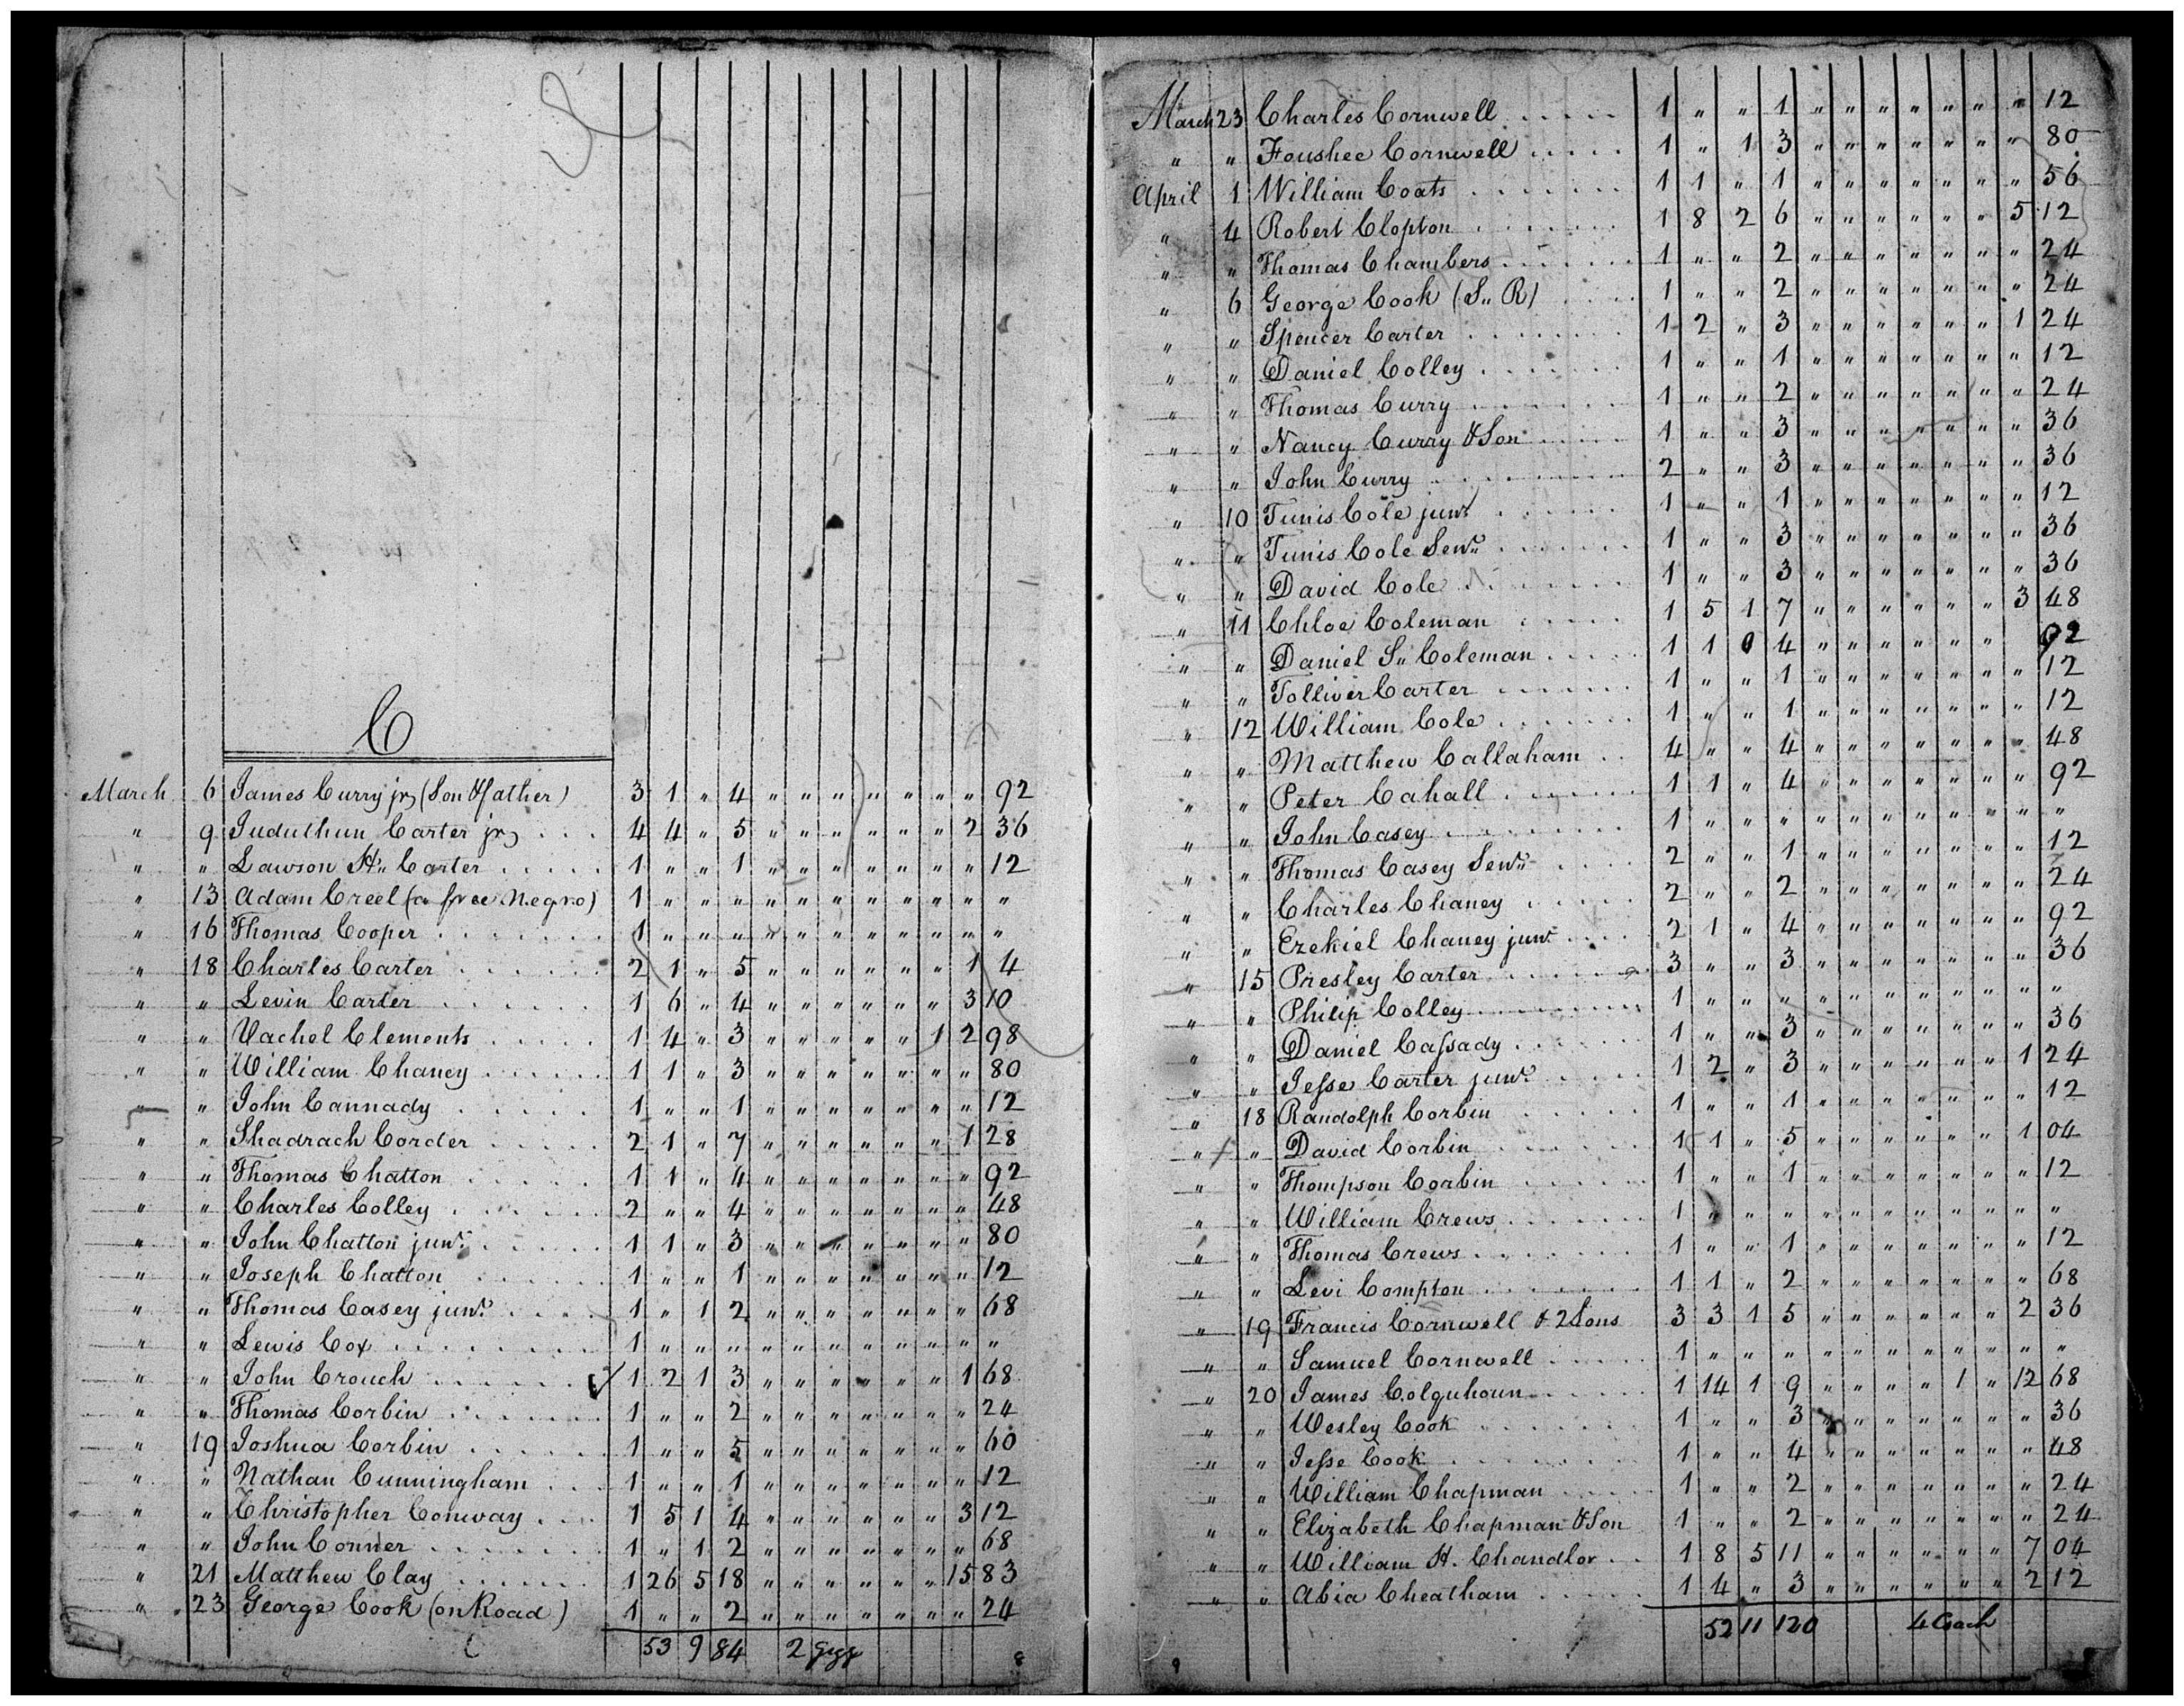 C
March 6 James Curry jr, (Son & father) 3 1 " 4 " " " " " " " 92
" 9 Juduthun Carter jr, . . . 4 4 " 5 " " " " " " 2 36
" " Lawson H" Carter . . . . . 1 " " 1 " " " " " " " 12
" 13 Adam Creel (a free Negro) 1 " " " " " " " " " " "
" 16 Thomas Cooper . . . . . . . 1 " " " " " " " " " " "
" 18 Charles Carter . . . . . . 2 1 " 5 " " " " " " 1 4
" " Levin Carter . . . . . . 1 6 " 4 " " " " " " 3 10
" " Vachel Clements . . . . . 1 4 " 3 " " " " " 1 2 98
" " William Chaney . . . . . . 1 1 " 3 " " " " " " " 80
" " John Cannady . . . . . 1 " " 1 " " " " " " " 12
" " Shadrach Corder . . . . . 2 1 " 7 " " " " " " 1 28
" " Thomas Chatton . . . . . 1 1 " 4 " " " " " " " 92
" " Charles Colley . . . . . . 2 " " 4 " " " " " " " 48
" " John Chatton junr. . . . . . 1 1 " 3 " " " " " " " 80
" " Joseph Chatton . . . . . 1 " " 1 " " " " " " " 12
" " Thomas Casey junr. . . . . 1 " 1 2 " " " " " " " 68
" " Lewis Cox . . . . . . . . 1 " " " " " " " " " " "
" " John Crouch . . . . . . ✓ 1 2 1 3 " " " " " " 1 68
" " Thomas Corbin . . . . . . . 1 " " 2 " " " " " " " 24
" 19 Joshua Corbin . . . . . . 1 " " 5 " " " " " " " 60
" " Nathan Cunningham . . . 1 " " 1 " " " " " " " 12
" " Christopher Conway . . . 1 5 1 4 " " " " " " 3 12
" " John Conner . . . . . . . 1 " 1 2 " " " " " " " 68
" 21 Matthew Clay . . . . . . 1 26 5 18 " " " " " " 15 83
" 23 George Cook (on Road) 1 " " 2 " " " " " " " 24
53 9 84 2 Gigs
8
March 23 Charles Cornwell . . . . . 1 " " 1 " " " " " " " 12
" " Foushee Cornwell . . . . . 1 " 1 3 " " " " " " " 80
April 1 William Coats . . . . . . 1 1 " 1 " " " " " " " 56
" 4 Robert Clopton . . . . . . 1 8 2 6 " " " " " " 5 12
" " Thomas Chambers . . . . . . 1 " " 2 " " " " " " " 24
" 6 George Cook (S" R) . . . . 1 " " 2 " " " " " " " 24
" " Spencer Carter . . . . . . . 1 2 " 3 " " " " " " 1 24
" " Daniel Colley . . . . . . . 1 " " 1 " " " " " " " 12
" " Thomas Curry . . . . . . 1 " " 2 " " " " " " " 24
" " Nancy Curry & Son . . . . . 1 " " 3 " " " " " " " 36
" " John Curry . . . . . . . . 2 " " 3 " " " " " " " 36
" 10 Tunis Cole junr . . . . . . 1 " " 1 " " " " " " " 12
" " Tunis Cole Senr. . . . . . . 1 " " 3 " " " " " " " 36
" " David Cole . . . . . . . 1 " " 3 " " " " " " " 36
" 11 Chloe Coleman . . . . . 1 5 1 7 " " " " " " 3 48
" " Daniel S" Coleman . . . . . 1 1 0 4 " " " " " " 92
" " Tolliver Carter . . . . . . 1 " " 1 " " " " " " " 12
" 12 William Cole . . . . . . . 1 " " 1 " " " " " " " 12
" " Matthew Callaham . . 4 " " 4 " " " " " " " 48
" " Peter Cahall . . . . . . 1 1 " 4 " " " " " " " 92
" " John Casey . . . . . . . . 1 " " " " " " " " " " "
" " Thomas Casey Senr. . . . 2 " " 1 " " " " " " " 12
" " Charles Chaney . . . . . 2 " " 2 " " " " " " " 24
" " Ezekiel Chaney junr. . . . . 2 1 " 4 " " " " " " " 92
" 15 Presley Carter . . . . . . . 3 " " 3 " " " " " " " 36
" " Philip Colley . . . . . . . . 1 " " " " " " " " " " "
" " Daniel Cassady . . . . . . 1 " " 3 " " " " " " " 36
" " Jesse Carter junr. . . . . 1 2 " 3 " " " " " " 1 24
" 18 Randolph Corbin . . . . . 1 " " 1 " " " " " " " 12
" " David Corbin . . . . . . 1 1 " 5 " " " " " " 1 04
" " Thompson Corbin . . . . . 1 " " 1 " " " " " " " 12
" " William Crews . . . . . . 1 " " " " " " " " " " "
" " Thomas Crews . . . . . . . 1 " " 1 " " " " " " " 12
" " Levi Compton . . . . . . . 1 1 " 2 " " " " " " " 68
" 19 Francis Cornwell & 2 Sons 3 3 1 5 " " " " " " 2 36
" " Samuel Cornwell . . . . . 1 " " " " " " " " " " "
" 20 James Colquhoun . . . . . 1 14 1 9 " " " " 1 " 12 68
" " Wesley Cook . . . . . . . 1 " " 3 " " " " " " " 36
" " Jesse Cook . . . . . . . . 1 " " 4 " " " " " " " 48
" " William Chapman . . . . 1 " " 2 " " " " " " " 24
" " Elizabeth Chapman & Son 1 " " 2 " " " " " " " 24
" " William H. Chandler . . 1 8 5 11 " " " " " " 7 04
" " Abia Cheatham . . . . . 1 4 " 3 " " " " " " 2 12
52 11 120 4 Coach
9